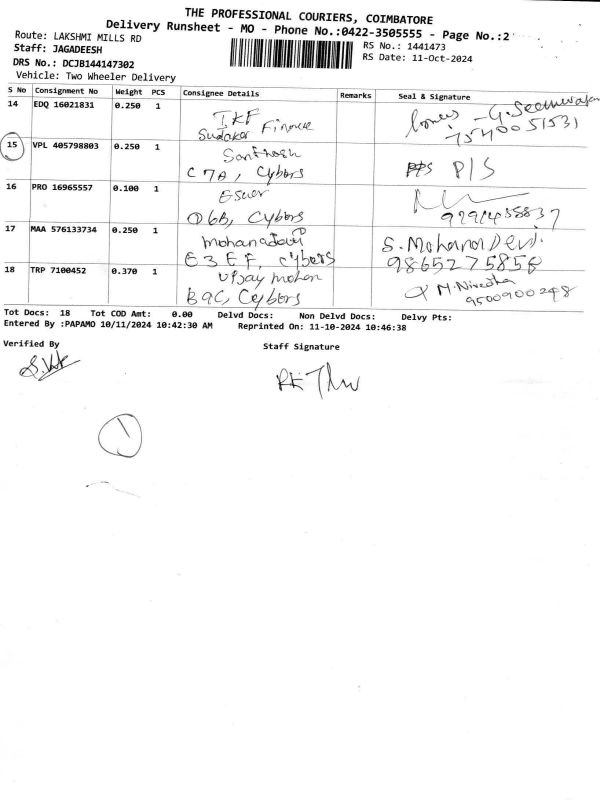 THE PROFESSIONAL COURIERS, COIMBATORE
Delivery Runsheet - MO - Phone No.:0422-3505555 - Page No.:2
Route: LAKSHMI MILLS RD
RS No.: 1441473
Staff: JAGADEESH
RS Date: 11-Oct-2024
DRS No.: DCJB144147302
Vehicle: Two Wheeler Delivery
S No Consignment No Weight PCS Consignee Details Remarks Seal & Signature
14 EDQ 16021831 0.250 1 IKF
Sudakar Finance 7540051531
15 VPL 405798803 0.250 1 Santhosh
C 7A, Cybers P/S
16 PRO 16965557 0.100 1
D6B, Cybers
17 MAA 576133734 0.250 1 Mohanadevi S. Mohana Devi.
E3EF, Cybers 9865275858
18 TRP 7100452 0.370 1 Vijay mohan M. Nivetha
B9C, Cybers 9500900248
Tot Docs: 18 Tot COD Amt: 0.00 Delvd Docs: Non Delvd Docs: Delvy Pts:
Entered By :PAPAMO 10/11/2024 10:42:30 AM Reprinted On: 11-10-2024 10:46:38
Verified By Staff Signature
1